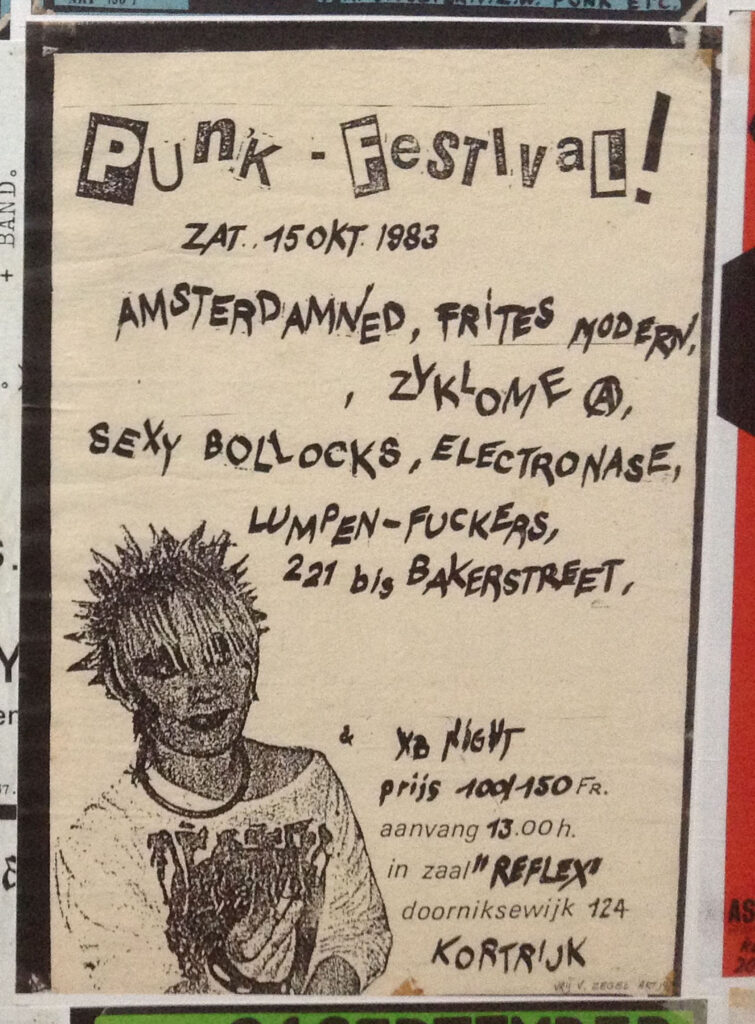 PUNK ETC.
+ BAND.
Punk - Festival!
ZAT. 15 OKT. 1983
AMSTERDAMNED, FRITES MODERN,
, ZYKLOME Ⓐ,
SEXY BOLLOCKS, ELECTRONASE,
LUMPEN-FUCKERS,
221 bis BAKERSTREET,
& XB NIGHT
prijs 100/150 FR.
aanvang 13.00h.
in zaal "REFLEX"
doorniksewijk 124
KORTRIJK
VRIJ V. ZEGEL